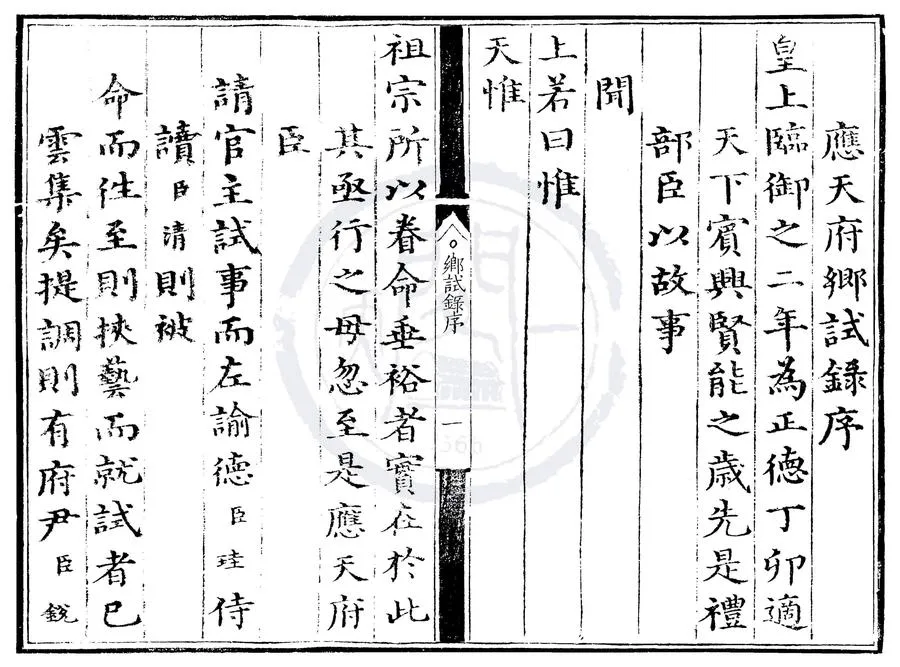 應天府鄉試錄序
皇上臨御之二年為正德丁卯適
天下賓興賢能之歲先是禮
部臣以故事
聞
上若曰惟
天惟
鄉試錄序
一
祖宗所以眷命垂裕者實在於此
其亟行之毋忽至是應天府
臣
請官主試事而左諭德臣珪侍
讀臣清則被
命而徃至則挾藝而就試者已
雲集矣提調則有府尹臣銳